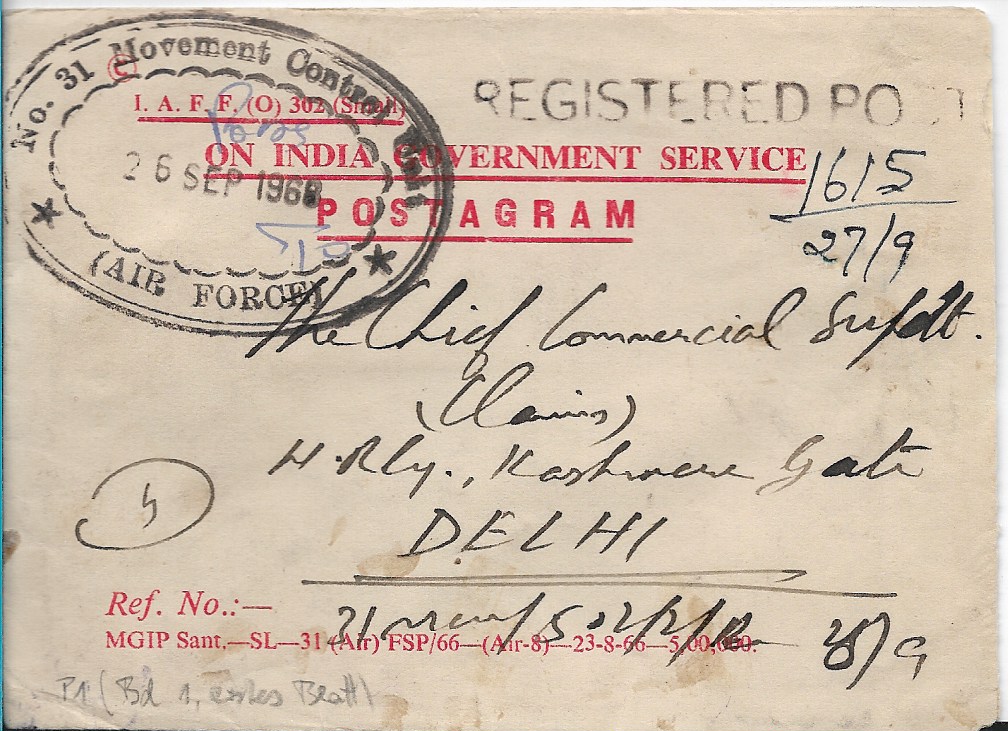 No. 31 Movement Control Unit
(AIR FORCE)
26 SEP 1968
I. A. F. F. (O) 302 (Small)
REGISTERED POST
ON INDIA GOVERNMENT SERVICE
POSTAGRAM
1615
27/9
The Chief Commercial Supdt.
(Claims)
N.Rly., Kashmere Gate
DELHI
Ref. No.:—
MGIP Sant.—SL—31 (Air) FSP/66—(Air-8)—23-8-66—5,00,000.
P1 (Bd 1, erstes Blatt)